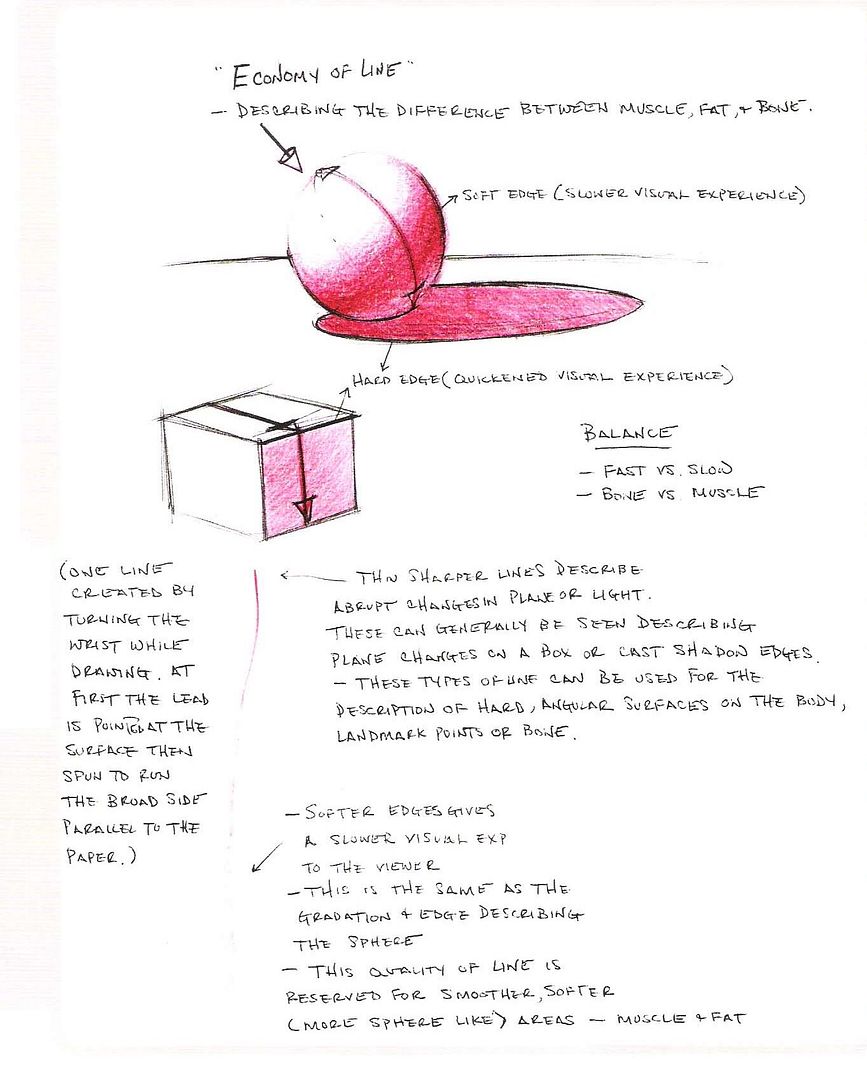 "Economy of Line"
— Describing the difference between muscle, fat, + bone.
Soft edge (slower visual experience)
Hard edge (quickened visual experience)
Balance
— Fast vs. slow
— Bone vs muscle
(One line
created by
turning the
wrist while
drawing. At
first the lead
is pointed at the
surface then
spun to run
the broad side
parallel to the
paper.)
Thin sharper lines describe
abrupt changes in plane or light.
These can generally be seen describing
plane changes on a box or cast shadow edges.
— These types of line can be used for the
description of hard, angular surfaces on the body,
landmark points or bone.
— Softer edges gives
a slower visual exp
to the viewer
— This is the same as the
gradation + edge describing
the sphere
— This quality of line is
reserved for smoother, softer
(more sphere like) areas — muscle + fat